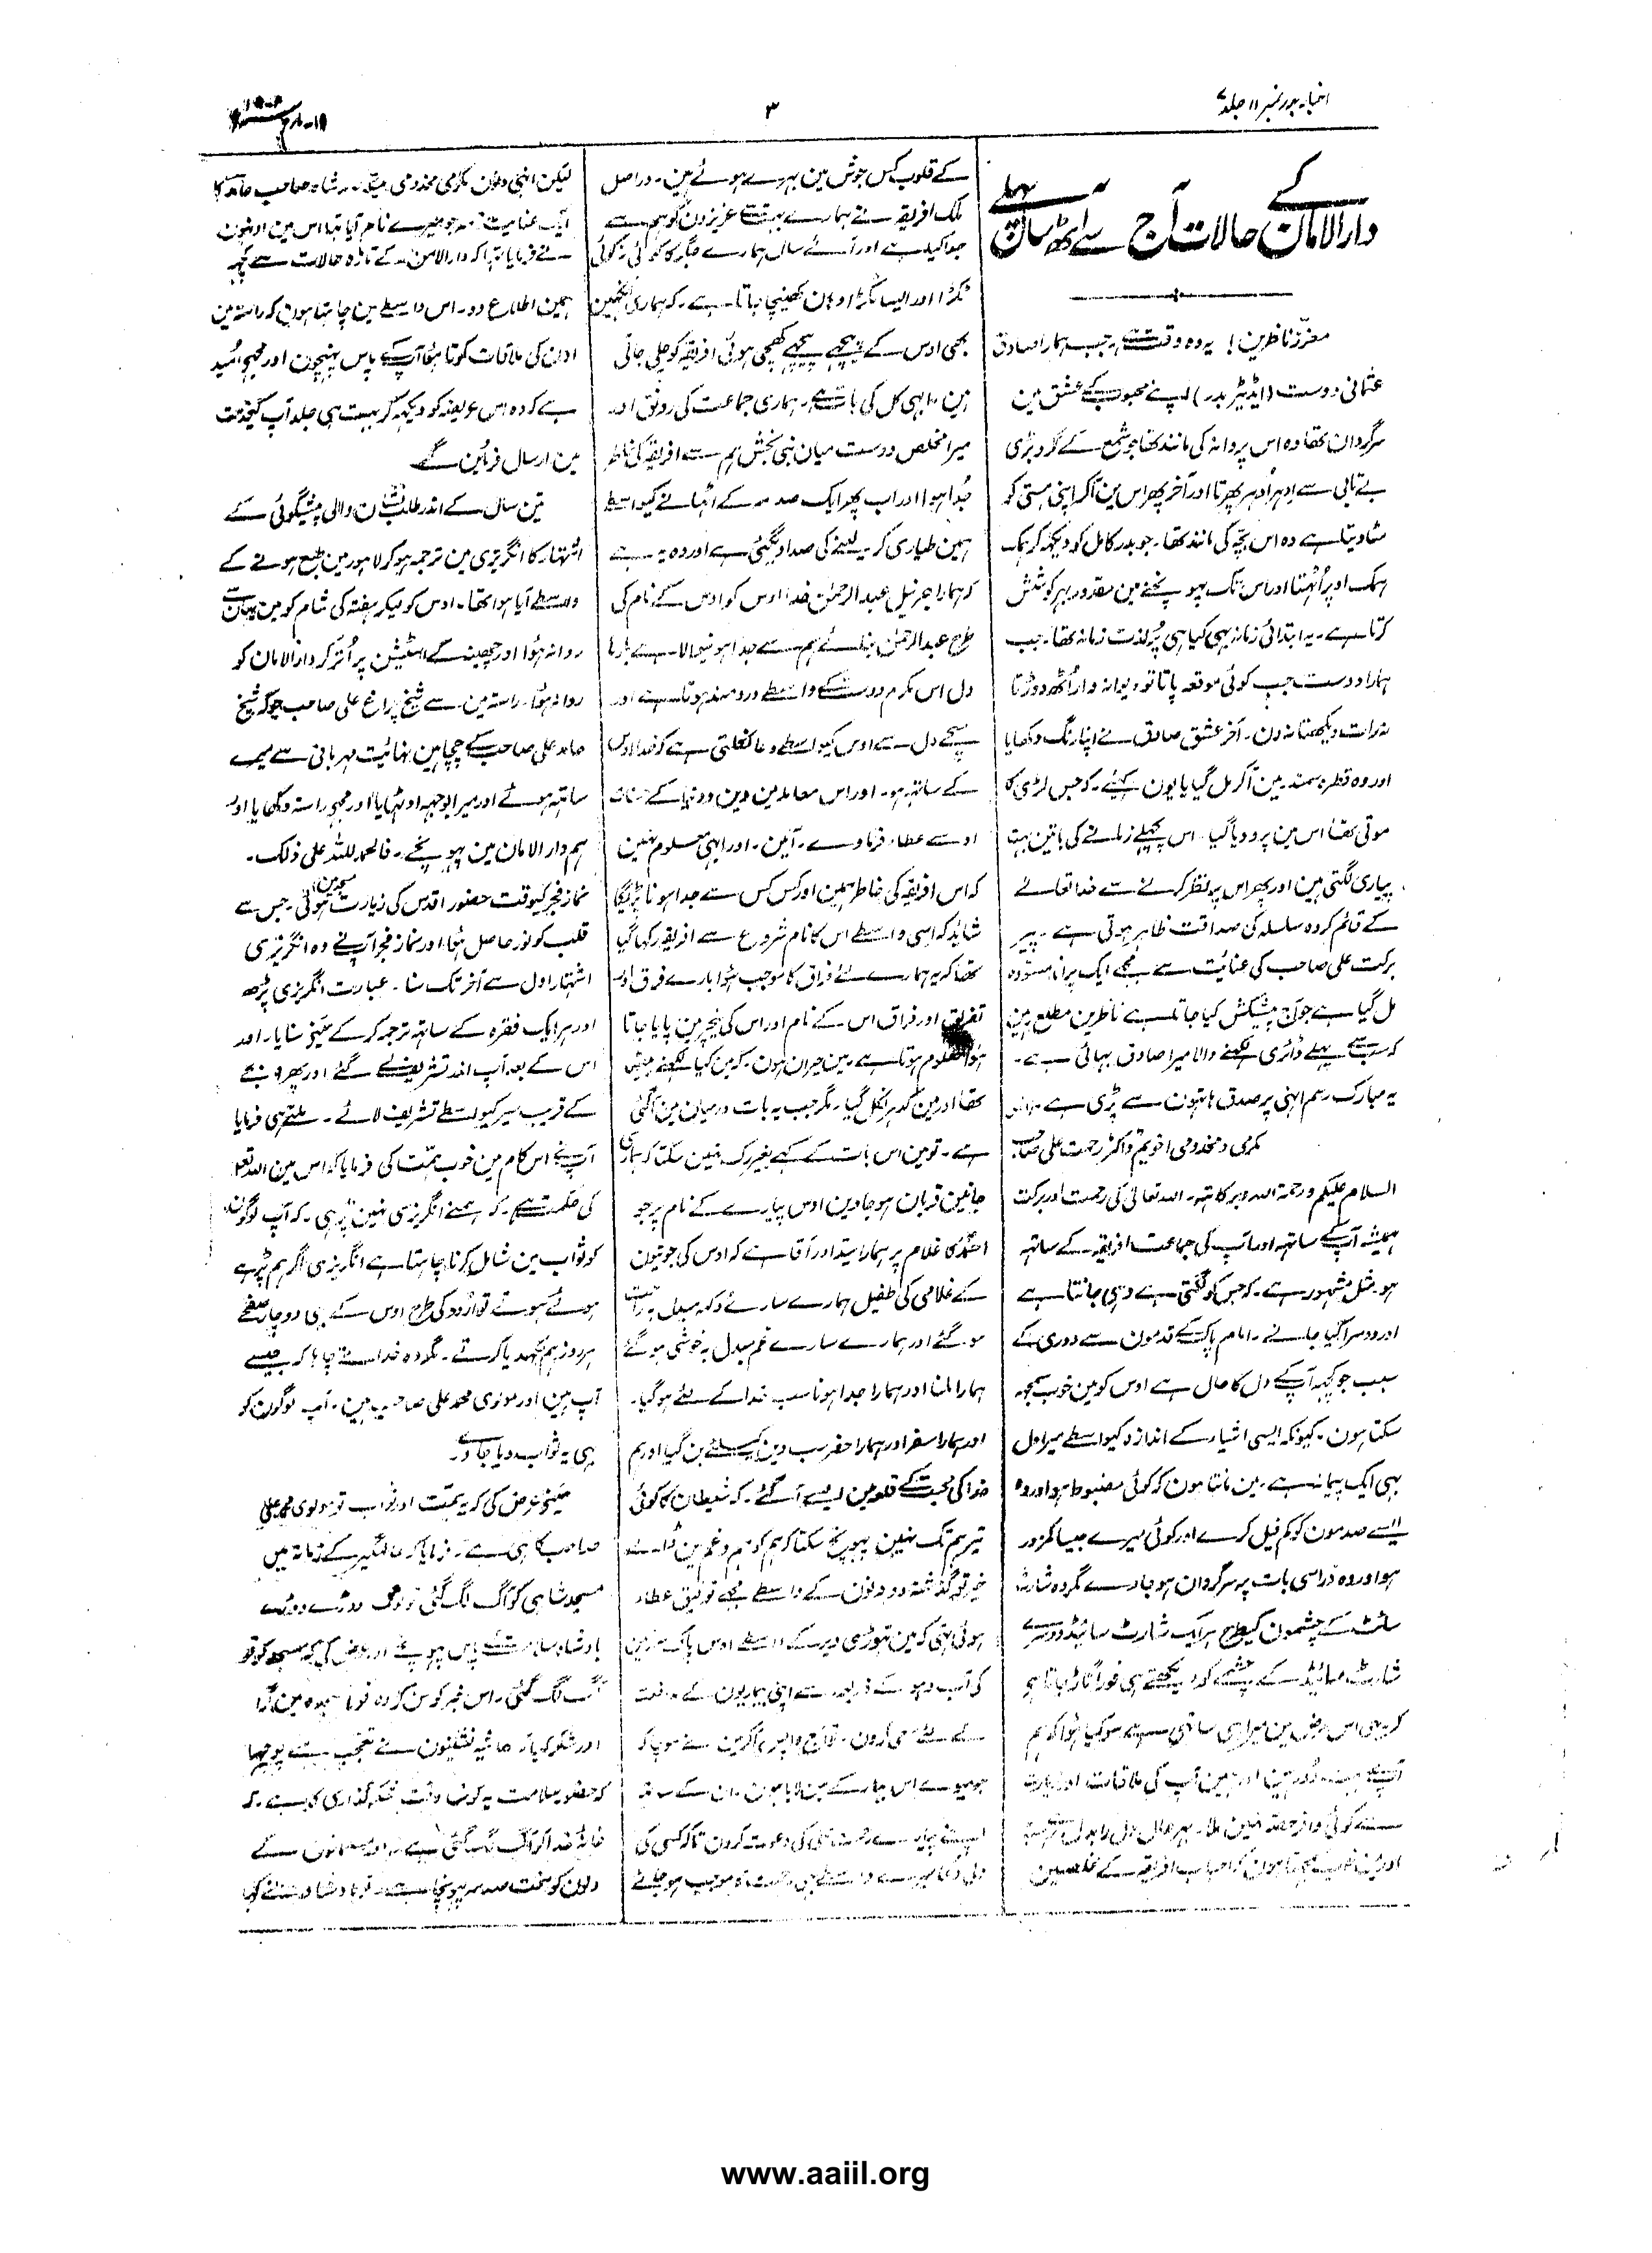 اخبار بدر نمبر ۱۱ جلد ۷
۳
۱۹۰۸
دارالامان کے حالات آج سے آٹھ سال پہلے
معزز ناظرین! یہ وہ وقت ہے جب ہمارا صادق
عثمانی دوست (ایڈیٹر بدر) اپنے محبوب کے عشق مین
سرگردان تھا وہ اس پروانہ کی مانند تھا جو شمع کے گرد بڑی
بے تابی سے اِدہر اُدہر پھرتا اور آخر پھر اس مین آکر اپنی ہستی کو
مٹا دیتا ہے وہ اس بچّہ کی مانند تھا۔ جو بدر کامل کو دیکھ کر ہمک
ہمک اوپر اُٹھتا اور اس تک پہو نچنے مین مقدور بہر کوشش
کرتا ہے۔ یہ ابتدائی زمانہ بہی کیا ہی پُر لذت زمانہ تھا۔ جب
ہمارا دوست جب کوئی موقعہ پاتا تو دیوانہ وار اُٹھ دوڑتا
نہ رات دیکھتا نہ دن۔ آخر عشق صادق نے اپنا رنگ دکھایا
اور وہ قطرہ سمندر مین آکر مل گیا یا یون کہئے۔ کہ جس لڑی کا
موتی تھا اس مین پرو دیا گیا۔ اس پہلے زمانے کی باتین بہت
پیاری لگتی ہین اور پھر اس پر نظر کرنے سے خدا تعالےٰ
کے قائم کردہ سلسلہ کی صداقت ظاہر ہوتی ہے۔ پیر
برکت علی صاحب کی عنائت سے مجھے ایک پرانا مسوّدہ
مل گیا ہے جو آج پیشکش کیا جاتا ہے ناظرین مطلع رہین
کہ سب سے پہلے ڈائری لکہنے والا میرا صادق بہائی ہے۔
یہ مبارک رسم انہی پر صدق ہاتہون سے پڑی ہے
مکرمی و مخدومی اخویم ڈاکٹر رحمت علی صاحب
السلام علیکم ورحمۃ اللہ وبرکاتہ۔ اللہ تعالیٰ کی رحمت اور برکت
ہمیشہ آپکے ساتہہ اور آپ کی جماعت افریقہ کے ساتہہ
ہو۔ مثل مشہور ہے۔ کہ جس کو لگتی ہے وہی جانتا ہے
اور دوسرا کیا جانے۔ امام پاک کے قدمون سے دوری کے
سبب جو کچہہ آپکے دل کا حال ہے اوس کو مین خوب سمجہہ
سکتا ہون۔ کیونکہ ایسی اشیاء کے اندازہ کیواسطے میرا دل
بہی ایک پیمانہ ہے۔ مین مانتا ہون کہ کوئی مضبوط ہو اور وہ
ایسے صدمون کو کم فیل کرے اور کوئی میرے جیسا کمزور
ہو اور وہ ذراسی بات پر سرگردان ہو جاوے مگر وہ شارٹ
سائٹ کے چشمون کیطرح ہر ایک شارٹ سائیڈ دوسرے
شارٹ سائیڈ کے چشمے کو دیکھتے ہی فوراً تاڑ جاتا ہے
کہ یہ بھی اس مرض مین میرا ہی ساتھی ہے سو کیا ہوا کہ ہم
آپسے دور ہین اور ہمین آپ کی ملاقات اور زیارت
سے کوئی وافر حصہ نہین ملا۔ بہرحال دل را بدل
اور مین خوب سمجہتا ہون کہ احباب افریقہ کے مخلصین
کے قلوب کس جوش مین بہرے ہوئے ہین۔ دراصل
ملک افریقہ نے ہمارے بہت سے عزیزون کو ہم سے
جدا کیا ہے اور آئے سال ہمارے جگر کا کوئی نہ کوئی
ٹکڑا اور ایسا ٹکڑا اودہان کھینچا جاتا ہے۔ کہ ہماری آنکہین
بھی اوس کے پیچہے پیچہے کھچی ہوئی افریقہ کو چلی جاتی
ہین۔ ابہی کل کی بات ہے۔ ہماری جماعت کی رونق اور
میرا مخلص دوست میان نبی بخش ہم سے افریقہ کی خاطر
جُدا ہوا اور اب پھر ایک صدمہ کے اٹہانے کیواسطے
ہمین طیاری کر لینے کی صدا دیگئی ہے اور وہ یہ ہے
کہ ہمارا جرنیل عبدالرحمٰن خدا اوس کو اوس کے نام کی
طرح عبدالرحمٰن بنائے ہم سے جدا ہونیوالا ہے ہمارا
دل اس مکرم دوست کے واسطے درد مند ہوتا ہے اور
سچے دل سے اوس کیواسطے دعا نکلتی ہے کہ خدا اوس
کے ساتہہ ہو۔ اور اس معاہد مین دین و دنیا کے حسنات
اوسے عطاء فرماوے۔ آمین۔ اور ابہی معلوم نہین
کہ اس افریقہ کی خاطر ہمین اور کس کس سے جدا ہونا پڑیگا
شاید کہ اسی واسطے اس کا نام شروع سے افریقہ رکہا گیا
تھا کہ یہ ہمارے لئے فراق کا موجب ہوا بارے فرق اور
تفریق اور فراق اس کے نام اور اس کی نیچر مین پایا جاتا
ہوا معلوم ہوتا ہے۔ مین حیران ہون۔ کہ مین کیا لکہنے بیٹہا
تھا اور مین کدہر نکل گیا۔ مگر جب یہ بات درمیان مین آگئی
ہے۔ تو مین اس بات کے کہے بغیر رک نہین سکتا کہ ہماری
جانین قربان ہو جاوین اوس پیارے کے نام پر جو
احمدؐ کا غلام پر ہمارا سید اور آقا ہے کہ اوس کی جوتیون
کے غلامی کی طفیل ہمارے سارے دکہ مبدل بہ راحت
ہو گئے اور ہمارے سارے غم مبدل بہ خوشی ہو گئے
ہمارا ملنا اور ہمارا جدا ہونا سب خدا کے لئے ہو گیا۔
اور ہمارا سفر اور ہمارا حضر سب دین کیلئے بن گیا اور ہم
خدا کی محبت کے قلعہ مین ایسے آگئے۔ کہ شیطان کا کوئی
تیر ہم تک نہین پہونچ سکتا کہ ہم کو ہم و غم مین ڈالے
خیر تو گذشتہ دو دنون کے واسطے مجھے توفیق عطاء
ہوئی تہی کہ مین تہوڑی دیر کے واسطے اوس پاک سرزمین
کی آب و ہوا کے ذریعہ سے اپنی بیماریون کے دفعت
کے لئے سعی کرون۔ تو آج واپس آکر مین نے سوچا کہ
جو میوے اس بہار کے مین لایا ہون۔ ان کے ساتہہ
اپنے پیارے رحمت علی کی دعوت کرون تا کہ کسی کی
دلی دعا میرے واسطے بہی رحمت کا موجب ہو جائے
لیکن انہی دنون مکرمی مخدومی سید شاہ صاحب حامد کا
ایک عنایت نامہ جو میرے نام آیا تہا اس مین اونہون
نے فرمایا تہا کہ دارالامن کے تازہ حالات سے کچہہ
ہمین اطلاع دو۔ اس واسطے مین چاہتا ہون کہ راستہ مین
اون کی ملاقات کرتا ہوا آپکے پاس پہنچون اور مجہے اُمید
ہے کہ وہ اس عریضہ کو دیکہہ کر بہت ہی جلد آپ کیخدمت
مین ارسال فرمائین گے۔
تین سال کے اندر طلب نشان والی پیشگوئی کے
اشتہار کا انگریزی مین ترجمہ ہو کر لاہور مین طبع ہونے کے
واسطے آیا ہوا تھا۔ اوس کو لیکر ہفتہ کی شام کو مین یہان سے
روانہ ہوا اور چھینہ کے اسٹیشن پر اُتر کر دارالامان کو
روانہ ہوا۔ راستہ مین سے شیخ چراغ علی صاحب جو کہ شیخ
حامد علی صاحب کے چچا ہین نہائت مہربانی سے میرے
ساتہہ ہوئے اور میرا بوجہہ اوٹہایا اور مجہے راستہ دکھایا اور
ہم دارالامان مین پہونچے۔ فالحمد للہ علی ذلک۔
نماز فجر کیوقت حضور اقدس کی زیارت مسجد مین ہوئی۔ جس سے
قلب کو نور حاصل ہوا۔ اور نماز فجر آپنے وہ انگریزی
اشتہار اول سے آخر تک سنا۔ عبارت انگریزی پڑھ
اور ہر ایک فقرہ کے ساتہہ ترجمہ کر کے مینے سنایا۔ اور
اس کے بعد آپ اندر تشریف لے گئے اور پھر ۹ بجے
کے قریب سیر کیواسطے تشریف لائے۔ ملتے ہی فرمایا
آپنے اس کام مین خوب ہمّت کی فرمایا کہ اس مین اللہ تعالیٰ
کی حکمت ہے۔ کہ ہمنے انگریزی نہین پڑہی۔ کہ آپ لوگونکو
کو ثواب مین شامل کرنا چاہتا ہے انگریزی اگر ہم پڑہے
ہوئے ہوتے تو اُردو کی طرح اوس کے بہی دو چار صفحے
ہر روز ہم لکہہ دیا کرتے۔ مگر وہ خدا نے چاہا کہ جیسے
آپ ہین اور مولوی محمد علی صاحب ہین۔ آپ لوگون کو
بہی یہ ثواب دیا جاوے۔
مینے عرض کی کہ ہمّت اور ثواب تو مولوی محمد علی
صاحب کا ہی ہے۔ فرمایا کہ عالمگیر کے زمانہ مین
مسجد شاہی کو آگ لگ گئی تو لوگ دوڑے دوڑے
بادشاہ سلامت کے پاس پہونچے اور عرض کی کہ مسجد کو تو
آگ لگ گئی۔ اس خبر کو سن کر وہ فوراً سجدہ مین گرا
اور شکر کیا۔ حاشیہ نشینون نے تعجب سے پوچہا
کہ حضور سلامت یہ کونسا وقت شکر گذاری کا ہے۔ کہ
خانہ خدا کو آگ لگ گئی ہے۔ اور مسلمانون کے
دلون کو سخت صدمہ پہونچا ہے۔ تو بادشاہ نے کہا
www.aaiil.org